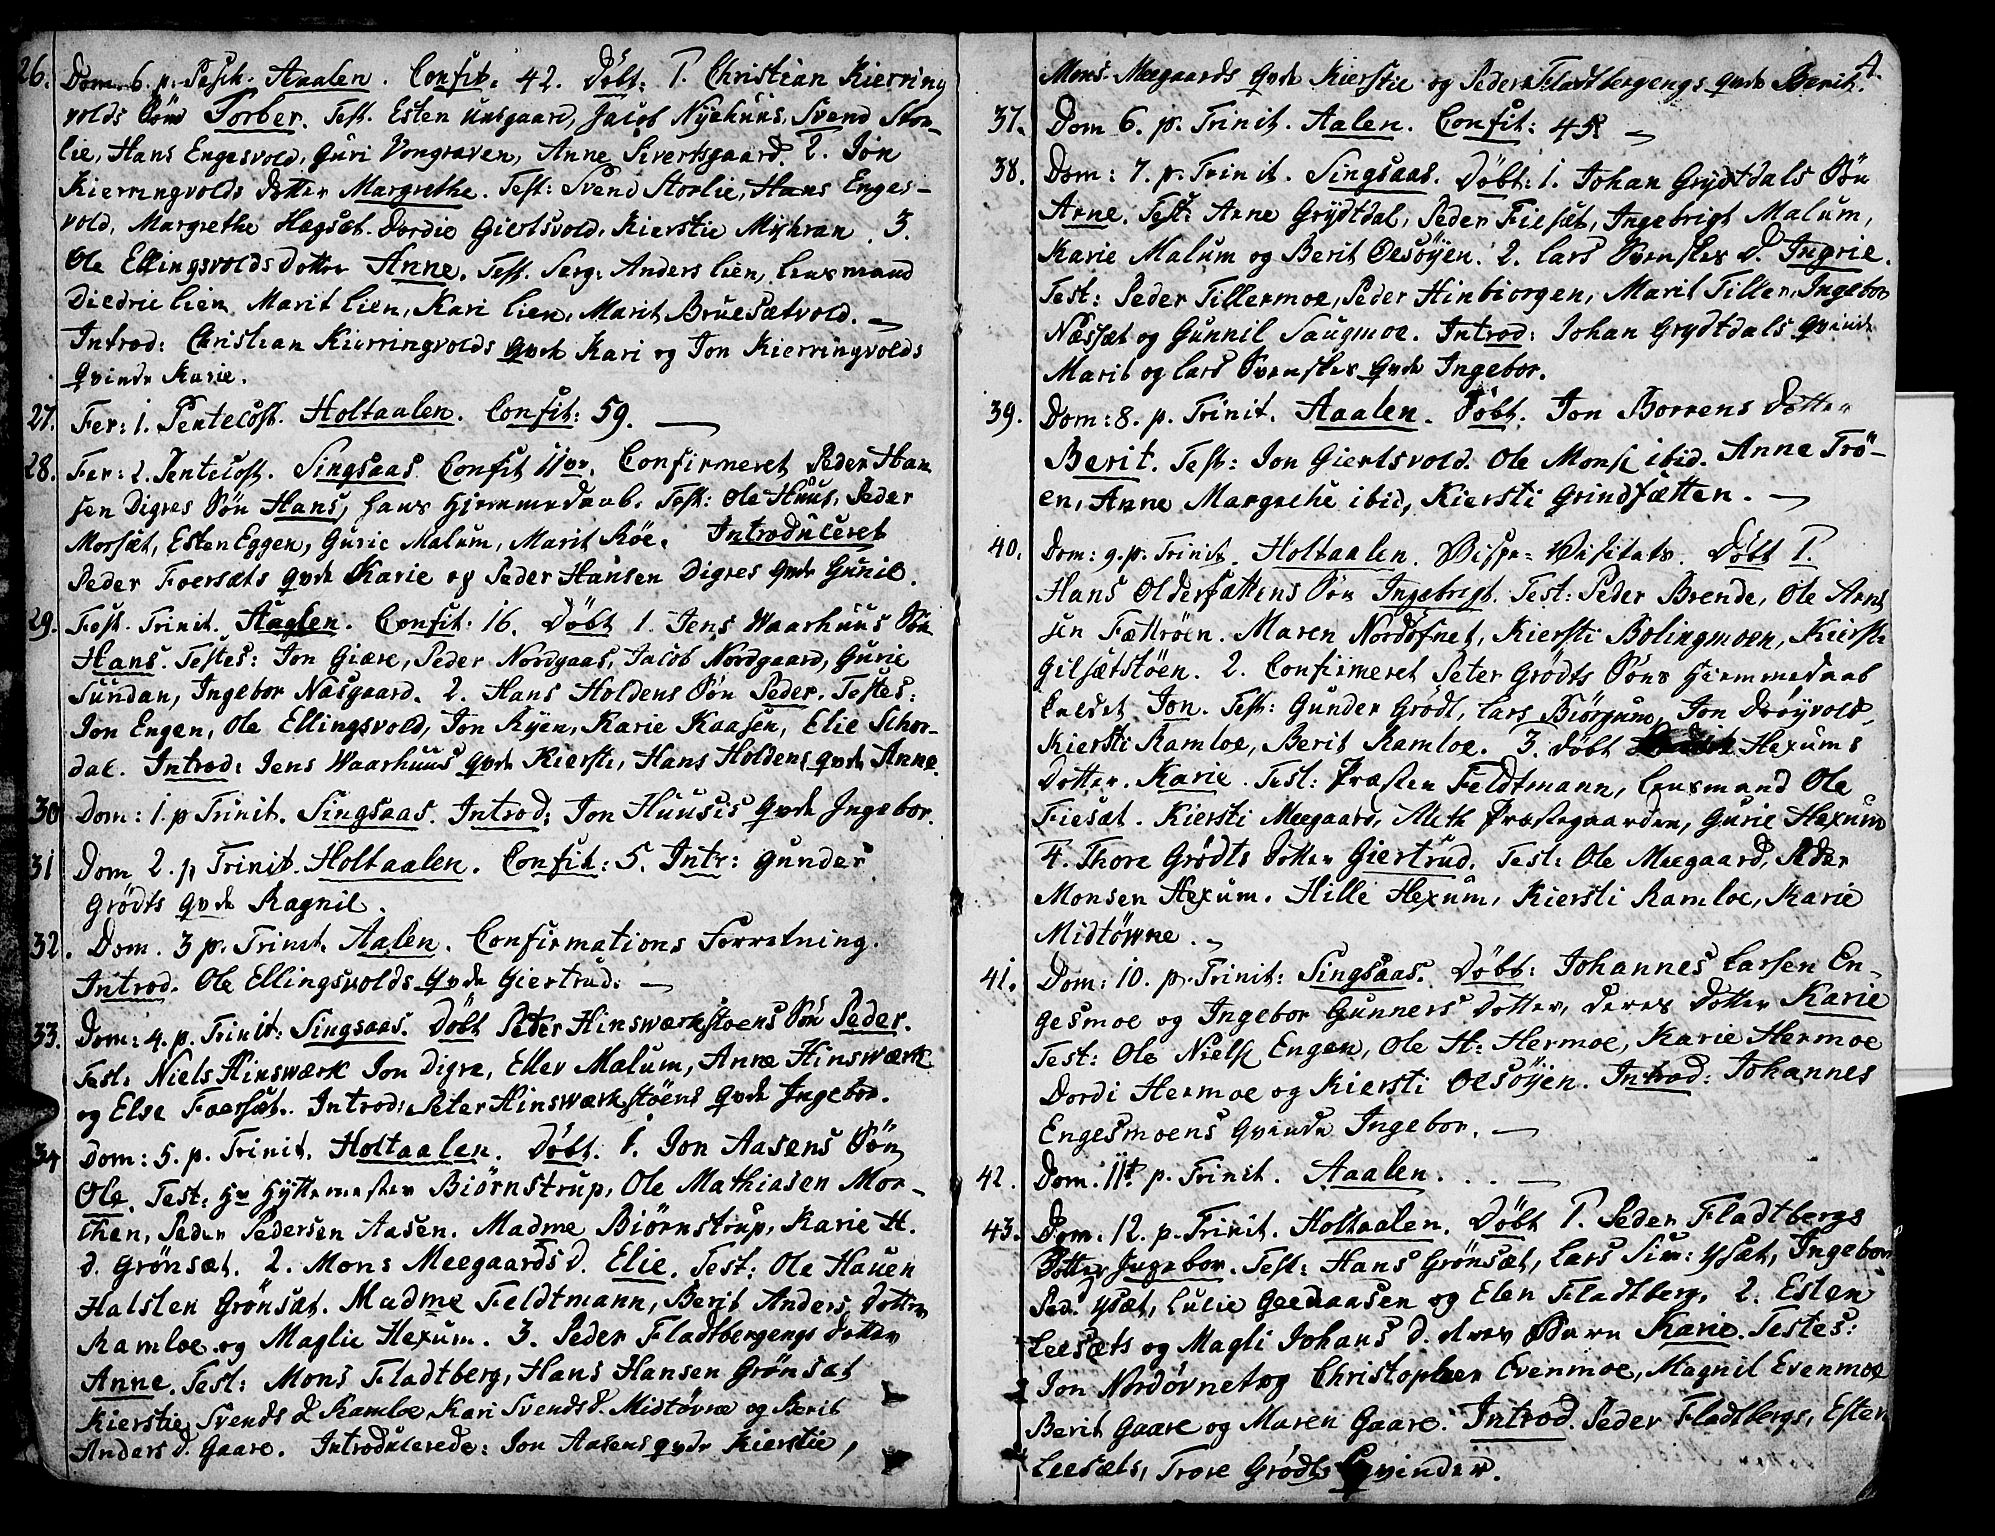 26. Dom. 6. p. Pasch. Aaalen. Confit. 42. Döbt: 1. Christian Kierring
volds Sön Torber. Test. Esten Unsgaard, Jacob Nyehuus, Svend Stor-
lie, Hans Engesvold, Guri Vongraven, Anne Sivertsgaard. 2. Jon
Kierringvolds Dotter Margrethe. Test: Svend Storlie, Hans Enges-
vold, Margrethe Hægsæt. Dordie Giertsvold. Kierstie Myhran. 3.
Ole Ellingsvolds Dotter Anne. Test. Serg: Anders Lien, Lensmand
Diedric Lien, Marit Lien, Kari Lien, Marit Bruesætvold.
Introd: Christian Kierringvolds Qvde Kari og Jon Kierringvolds
Qvinde Karie.
27. Fer: 1. Pentecost. Holtaalen. Confit: 59.
28. Fer: 2. Pentecost. Singsaas. Confit 11ve. Confirmeret Peder Han
sen Digres Sön Hans, hans Hjemmedaab. Test: Ole Huus, Peder
Morsæt, Esten Eggen, Gurie Malum, Marit Röe. Introduceret
Peder Foersæts Qvde Karie og Peder Hansen Digres Qvde Gunil.
29. Fest. Trinit. Aaalen. Confit: 16. Döbt 1. Jens Waarhuus Sön
Hans. Testes: Jon Giære, Peder Nordgaas, Jacob Nordgaard, Gurie
Sundan, Ingebor Næsgaard. 2. Hans Holdens Sön Peder. Testes:
Jon Engen, Ole Ellingsvold, Jon Ryen, Karie Kaasen, Elie Schor-
dal. Introd: Jens Waarhuus Qvde Kiersti, Hans Holdens Qvde Anne.
30 Dom: 1. p Trinit. Singsaas. Introd: Jon Huusis Qvde Ingebor.
31 Dom 2. p Trinit. Holtaalen. Confit: 5. Intr: Gunder
Grödts Qvde Ragnil.
32. Dom. 3 p. Trinit. Aalen. Confirmations Forretning.
Introd. Ole Ellingsvolds Qvde Giertrud.
33. Dom: 4. p. Trinit: Singsaas. Döbt Peter Hinswærkstöens Sön Peder.
Test: Niels Hinswærk Jon Digre, Eller Malum, Anne Hinswærk
og Else Foersæt. Introd: Peter Hinswærkstöens Qvde Ingebor.
34 Dom: 5. p. Trinit. Holtaalen. Döbt. 1. Jon Aasens Sön
Ole. Test: Hr Hyttemester Biörnstrup, Ole Mathiasen Mor-
then, Peder Pedersen Aasen. Madme Biörnstrup, Karie H.
D. Grönsæt. 2. Mons Meegaards D. Elie. Test: Ole Hauen
Halsten Grönsæt. Madme Feldtmann, Berit Anders Dotter
Ramloe og Maglie Hexum. 3. Peder Fladtbergengs Dotter
Anne. Test: Mons Fladtberg, Hans Hansen Grönsæt
Kierstie Svends D Ramloe Kari Svends D. Midtövne og Berit
Anders D. Gaare. Introducerede: Jon Aasens Qvde Kierstie,
4.
Mons Meegaards Qvde Kierstie og Peder Fladtbergengs Qvde Berit.
37. Dom 6. p. Trinit. Aalen. Confit: 45
38. Dom: 7. p. Trinit. Singsaas. Döbt: 1. Johan Grydtdals Sön
Arne. Test: Arne Grydtdal, Peder Fiesæt, Ingebrigt Malum,
Karie Malum og Berit Oesöyen. 2. Lars Svensles D. Ingrie.
Test: Peder Tillermoe, Peder Hinbiorgen, Marit Tiller, Ingebor
Næssæt og Gunnil Saugmoe. Introd: Johan Grydtdals Qvinde
Marit og Lars Svensles Qvde Ingebor.
39. Dom: 8. p. Trinit. Aaalen. Döbt. Jon Borrens Dotter
Berit. Test: Jon Giertsvold. Ole Mons ibid. Anne Trö-
en, Anne Margrethe ibid, Kiersti Grindfætten.
40. Dom: 9. p. Trinit. Holtaalen. Bispe-Visitats. Döbt 1.
Hans Oldersættens Sön Ingebrigt. Test: Peder Brende, Ole Arnt
sen Fættröen. Maren Nordöfnet, Kiersti Bolingmoen, Kiersti
Gilsætstöen. 2. Confirmeret Peter Grödts Söns Hiemmedaab
Caldet Jon. Test: Gunder Grödt, Lars Biörgum, Jon Dröyvold,
Kiersti Ramloe, Berit Ramloe. 3. Döbt Hexums
Dotter. Karie. Test: Præsten Feldtmann, Lensmand Ole
Fiesæt. Kiersti Meegaard, Meth Præstegaarden, Gurie Hexum
4. Thore Grödts Dotter Giertrud. Test: Ole Meegaard, Peder
Monsen Hexum. Hille Hexum, Kiersti Ramloe, Karie
Midtöwne.
41. Dom: 10. p. Trinit: Singsaas. Döbt: Johannes Larsen En-
gesmoe og Ingebor Gunners Dotter, deres Dotter Karie
Test: Ole Niels Engen, Ole H: Hermoe, Karie Hermoe
Dordi Hermoe og Kiersti Oesöyen. Introd: Johannes
Engesmoens Qvinde Ingebor.
42. Dom. 11te p. Trinit. Aaalen.
43. Dom: 12. p. Trinit. Holtaalen. Döbt 1. Peder Fladtbergs
Dotter Ingebor. Test: Hans Grönsæt, Lars Sim: Ysæt, Ingebor
Ped: Ysæt, Lucie Geedaasen og Elen Fladtberg. 2. Esten
Leesæts og Magli Johans D. deres Barn Karie. Testes:
Jon Nordövnet og Christopher Evenmoe, Magnil Evenmoe
Berit Gaare og Maren Gaare. Introd. Peder Fladtbergs, Esten
Leesæts, Trore Grödts Qvinder.